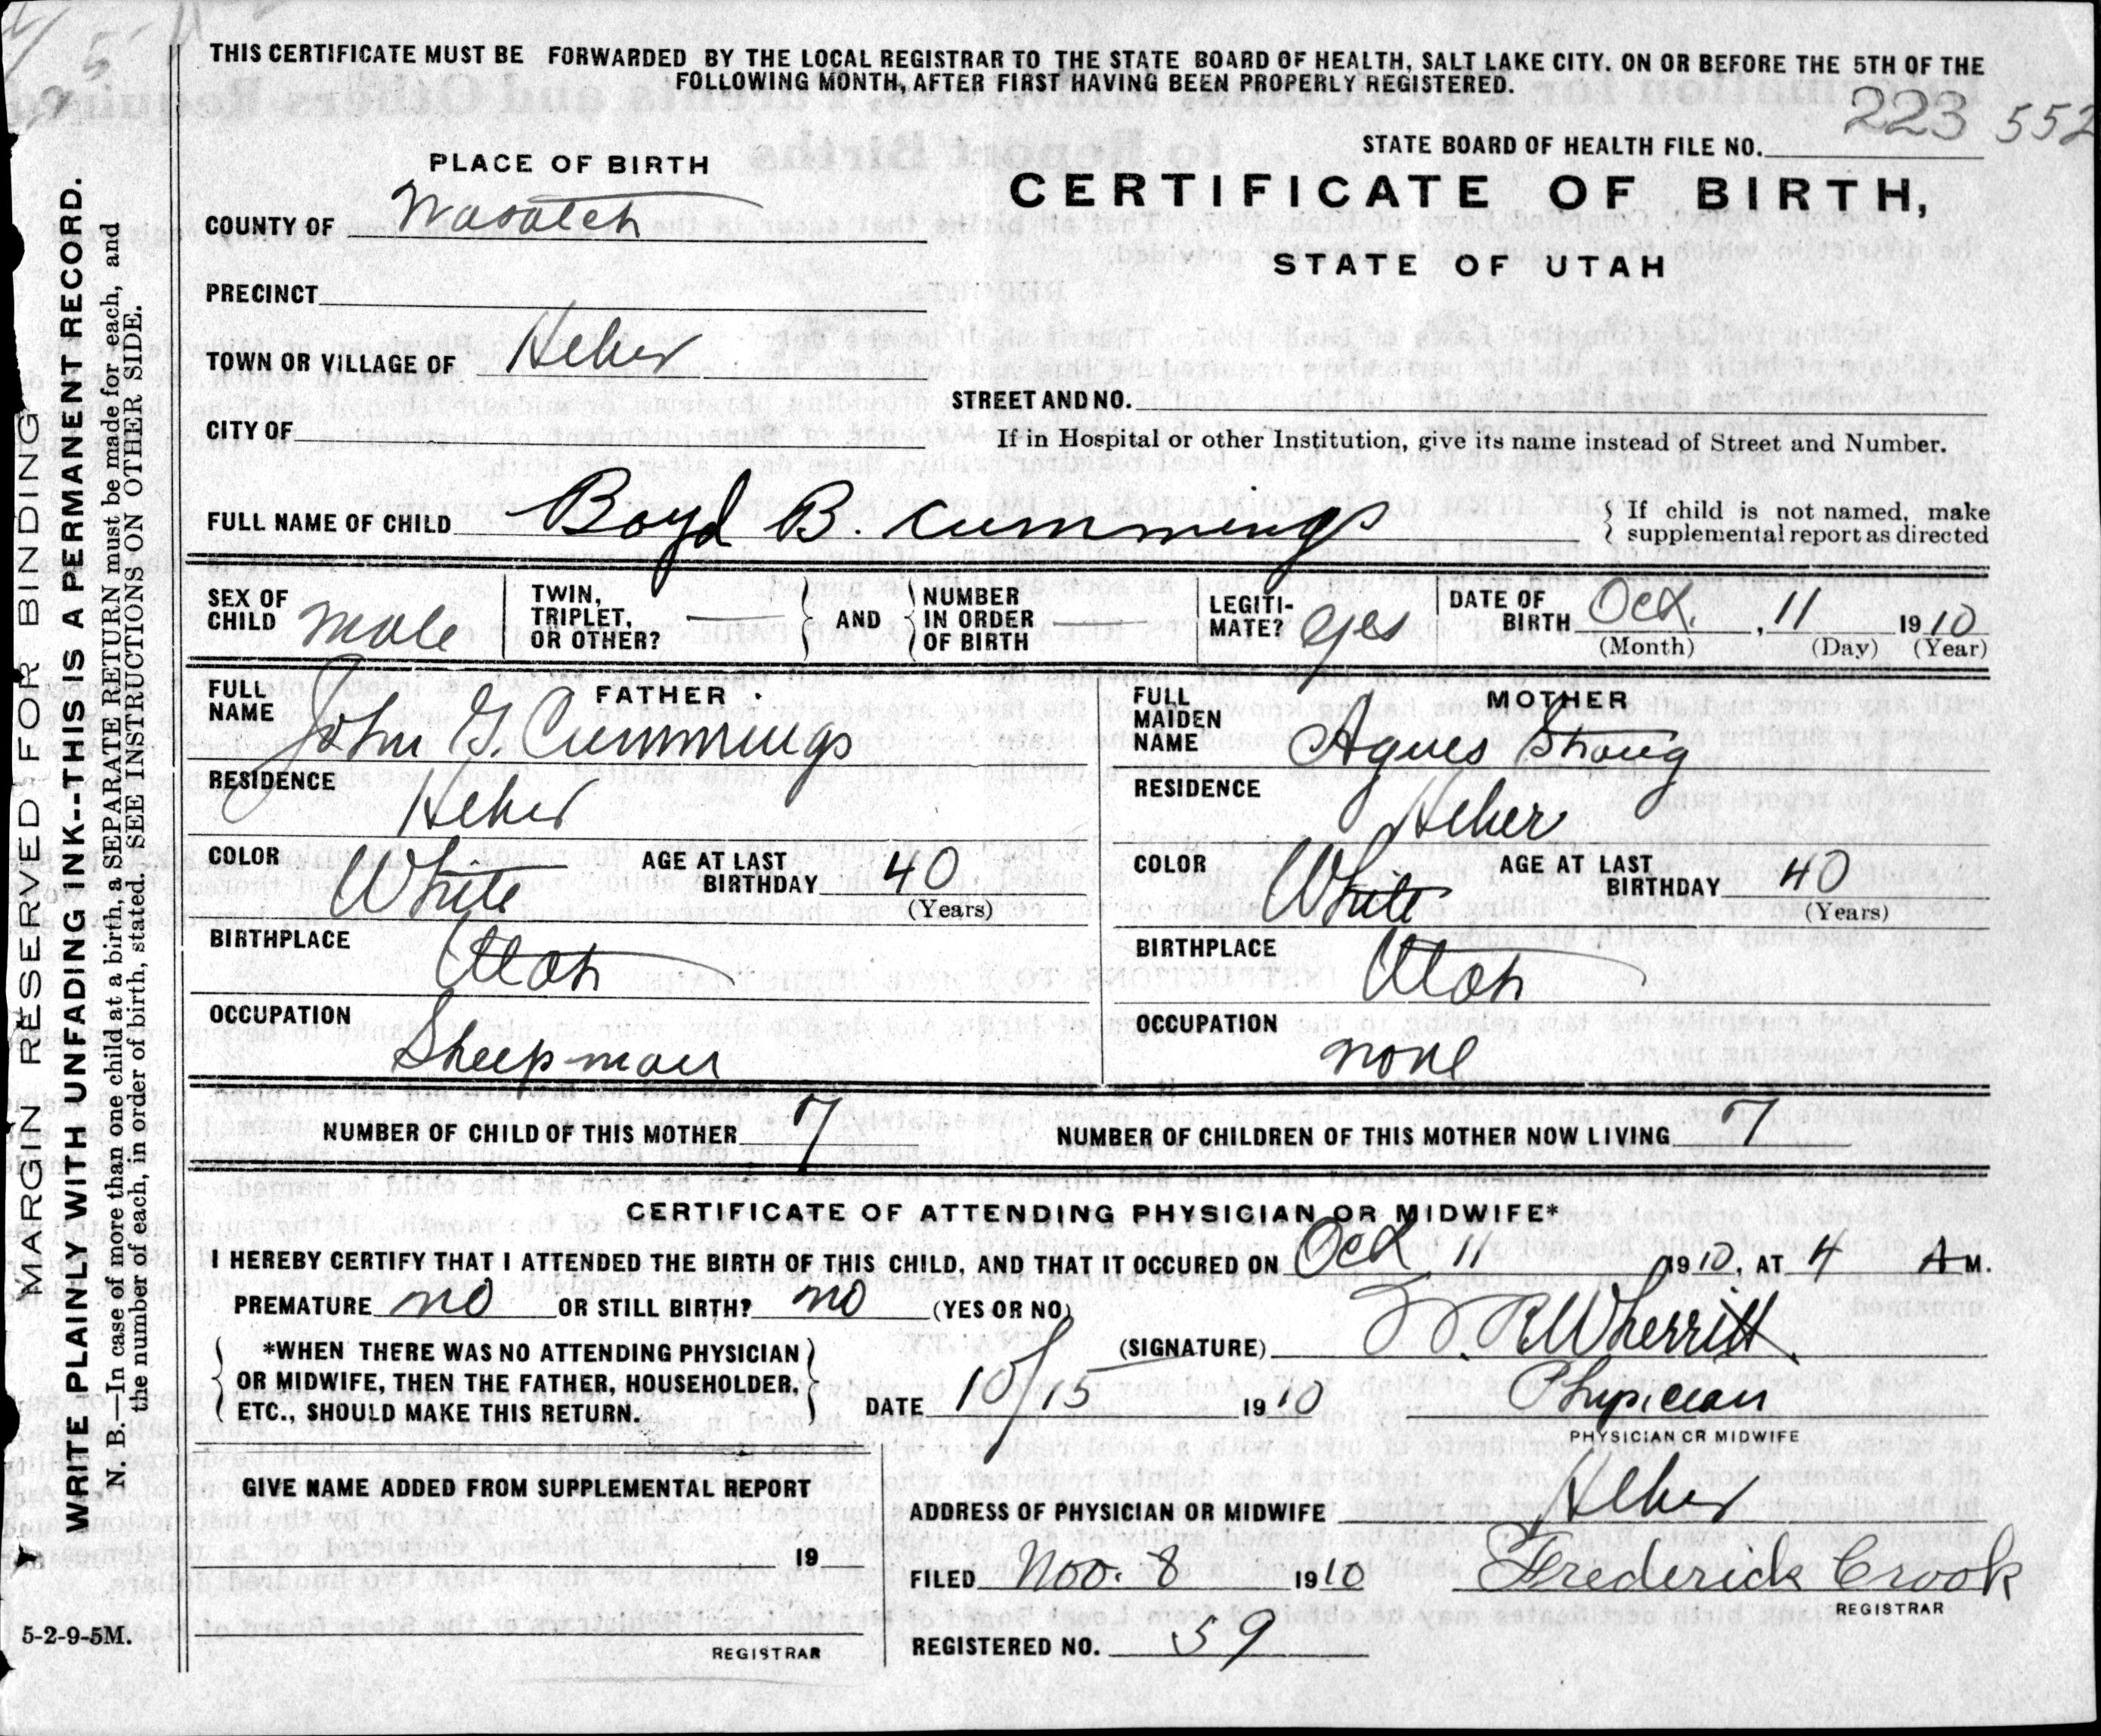 THIS CERTIFICATE MUST BE FORWARDED BY THE LOCAL REGISTRAR TO THE STATE BOARD OF HEALTH, SALT LAKE CITY. ON OR BEFORE THE 5TH OF THE
FOLLOWING MONTH, AFTER FIRST HAVING BEEN PROPERLY REGISTERED.
223 552
STATE BOARD OF HEALTH FILE NO.
PLACE OF BIRTH
CERTIFICATE OF BIRTH,
STATE OF UTAH
COUNTY OF Wasatch
PRECINCT
TOWN OR VILLAGE OF Heber
STREET AND NO.
CITY OF
If in Hospital or other Institution, give its name instead of Street and Number.
FULL NAME OF CHILD Boyd B. Cummings
If child is not named, make
supplemental report as directed
SEX OF CHILD male
TWIN, TRIPLET, OR OTHER? AND NUMBER IN ORDER OF BIRTH
LEGITI-MATE? yes
DATE OF BIRTH Oct. , 11 1910
(Month) (Day) (Year)
FATHER
FULL NAME John G. Cummings
RESIDENCE Heber
COLOR White AGE AT LAST BIRTHDAY 40
(Years)
BIRTHPLACE Utah
OCCUPATION Sheepman
MOTHER
FULL MAIDEN NAME Agnes Strong
RESIDENCE Heber
COLOR White AGE AT LAST BIRTHDAY 40
(Years)
BIRTHPLACE Utah
OCCUPATION none
NUMBER OF CHILD OF THIS MOTHER 7 NUMBER OF CHILDREN OF THIS MOTHER NOW LIVING 7
CERTIFICATE OF ATTENDING PHYSICIAN OR MIDWIFE*
I HEREBY CERTIFY THAT I ATTENDED THE BIRTH OF THIS CHILD, AND THAT IT OCCURED ON Oct 11 1910, AT 4 A M.
PREMATURE no OR STILL BIRTH? no (YES OR NO)
*WHEN THERE WAS NO ATTENDING PHYSICIAN
OR MIDWIFE, THEN THE FATHER, HOUSEHOLDER,
ETC., SHOULD MAKE THIS RETURN.
(SIGNATURE) R. Wherritt
DATE 10/15 1910 Physician
PHYSICIAN OR MIDWIFE
GIVE NAME ADDED FROM SUPPLEMENTAL REPORT
19
REGISTRAR
ADDRESS OF PHYSICIAN OR MIDWIFE Heber
FILED Nov. 8 1910 Frederick Crook
REGISTRAR
REGISTERED NO. 59
5-2-9-5M.
MARGIN RESERVED FOR BINDING
WRITE PLAINLY WITH UNFADING INK--THIS IS A PERMANENT RECORD.
N. B.—In case of more than one child at a birth, a SEPARATE RETURN must be made for each, and
the number of each, in order of birth, stated. SEE INSTRUCTIONS ON OTHER SIDE.